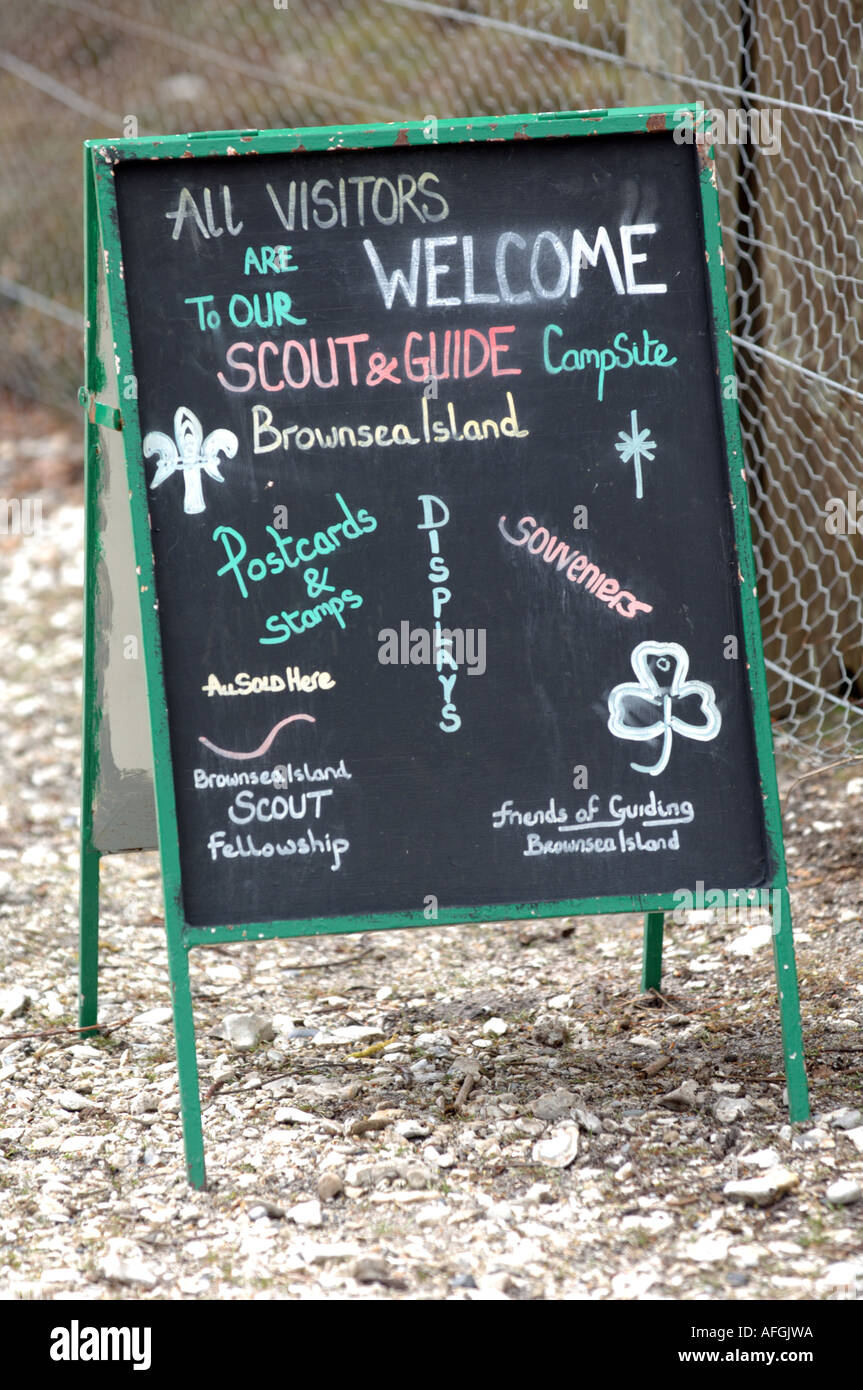 ALL VISITORS
ARE WELCOME
To OUR
SCOUT & GUIDE CampSite
Brownsea Island
Postcards
&
Stamps
DISPLAYS
Souveniers
All SOLD Here
Brownsea Island
SCOUT
Fellowship
friends of Guiding
Brownsea Island
alamy
Image ID: AFGJWA
www.alamy.com